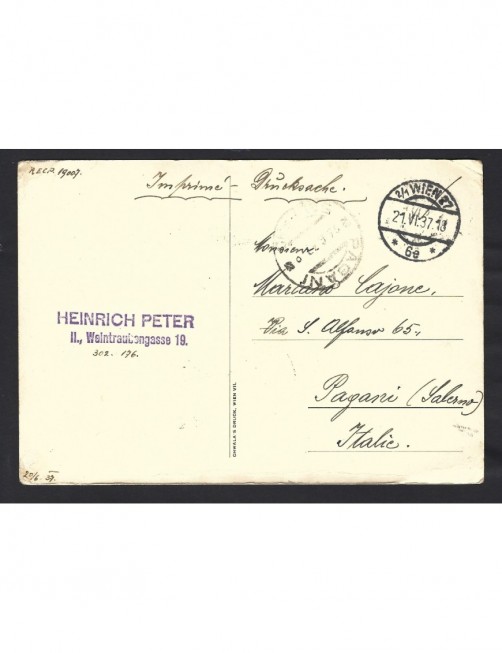 RECP. 1900?.
Imprimé – Drucksache.
2/1 WIEN 27
21.VI.37.18
* 6a *
PAGANI
Monsieur
Mariano Cajone.
Via S. Alfonso 65.
Pagani (Salerno)
Italie.
HEINRICH PETER
II., Weintraubengasse 19.
302. 176.
CHWALA'S DRUCK, WIEN VII.
20/6. 37.